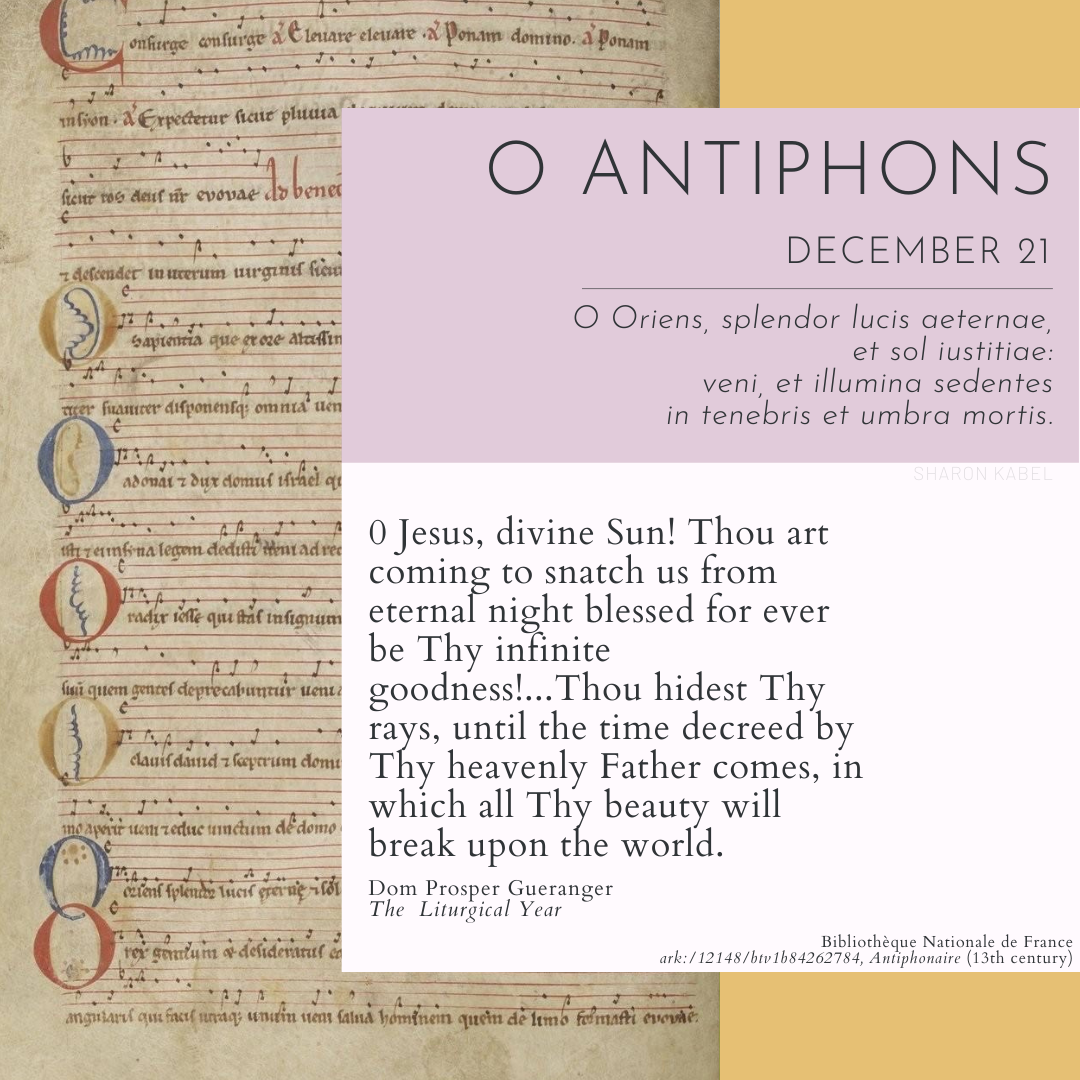 onsurge consurge a Eleuare eleuare . a Ponam domino. a Ponam
a Expectetur sicut pluuia
sicut ros deus nr evovae Ad bene
descendet in uterum uirginis sicu
O sapientia que ex ore altissim
suauiter disponensq; omnia uen
O adonai dux domus israel q
legem dedisti ueni ad red
O radix iesse qui stas in signum
quem gentes deprecabuntur ueni a
O clauis dauid sceptrum domu
ueni educ uinctum de domo
O oriens splendor lucis eterne sol
O rex gentium desideratus
angularis qui facis utraq; unum ueni salua hominem quem de limo formasti evovae.
O ANTIPHONS
DECEMBER 21
O Oriens, splendor lucis aeternae,
et sol iustitiae:
veni, et illumina sedentes
in tenebris et umbra mortis.
SHARON KABEL
0 Jesus, divine Sun! Thou art
coming to snatch us from
eternal night blessed for ever
be Thy infinite
goodness!...Thou hidest Thy
rays, until the time decreed by
Thy heavenly Father comes, in
which all Thy beauty will
break upon the world.
Dom Prosper Gueranger
The Liturgical Year
Bibliothèque Nationale de France
ark:/12148/btv1b84262784, Antiphonaire (13th century)